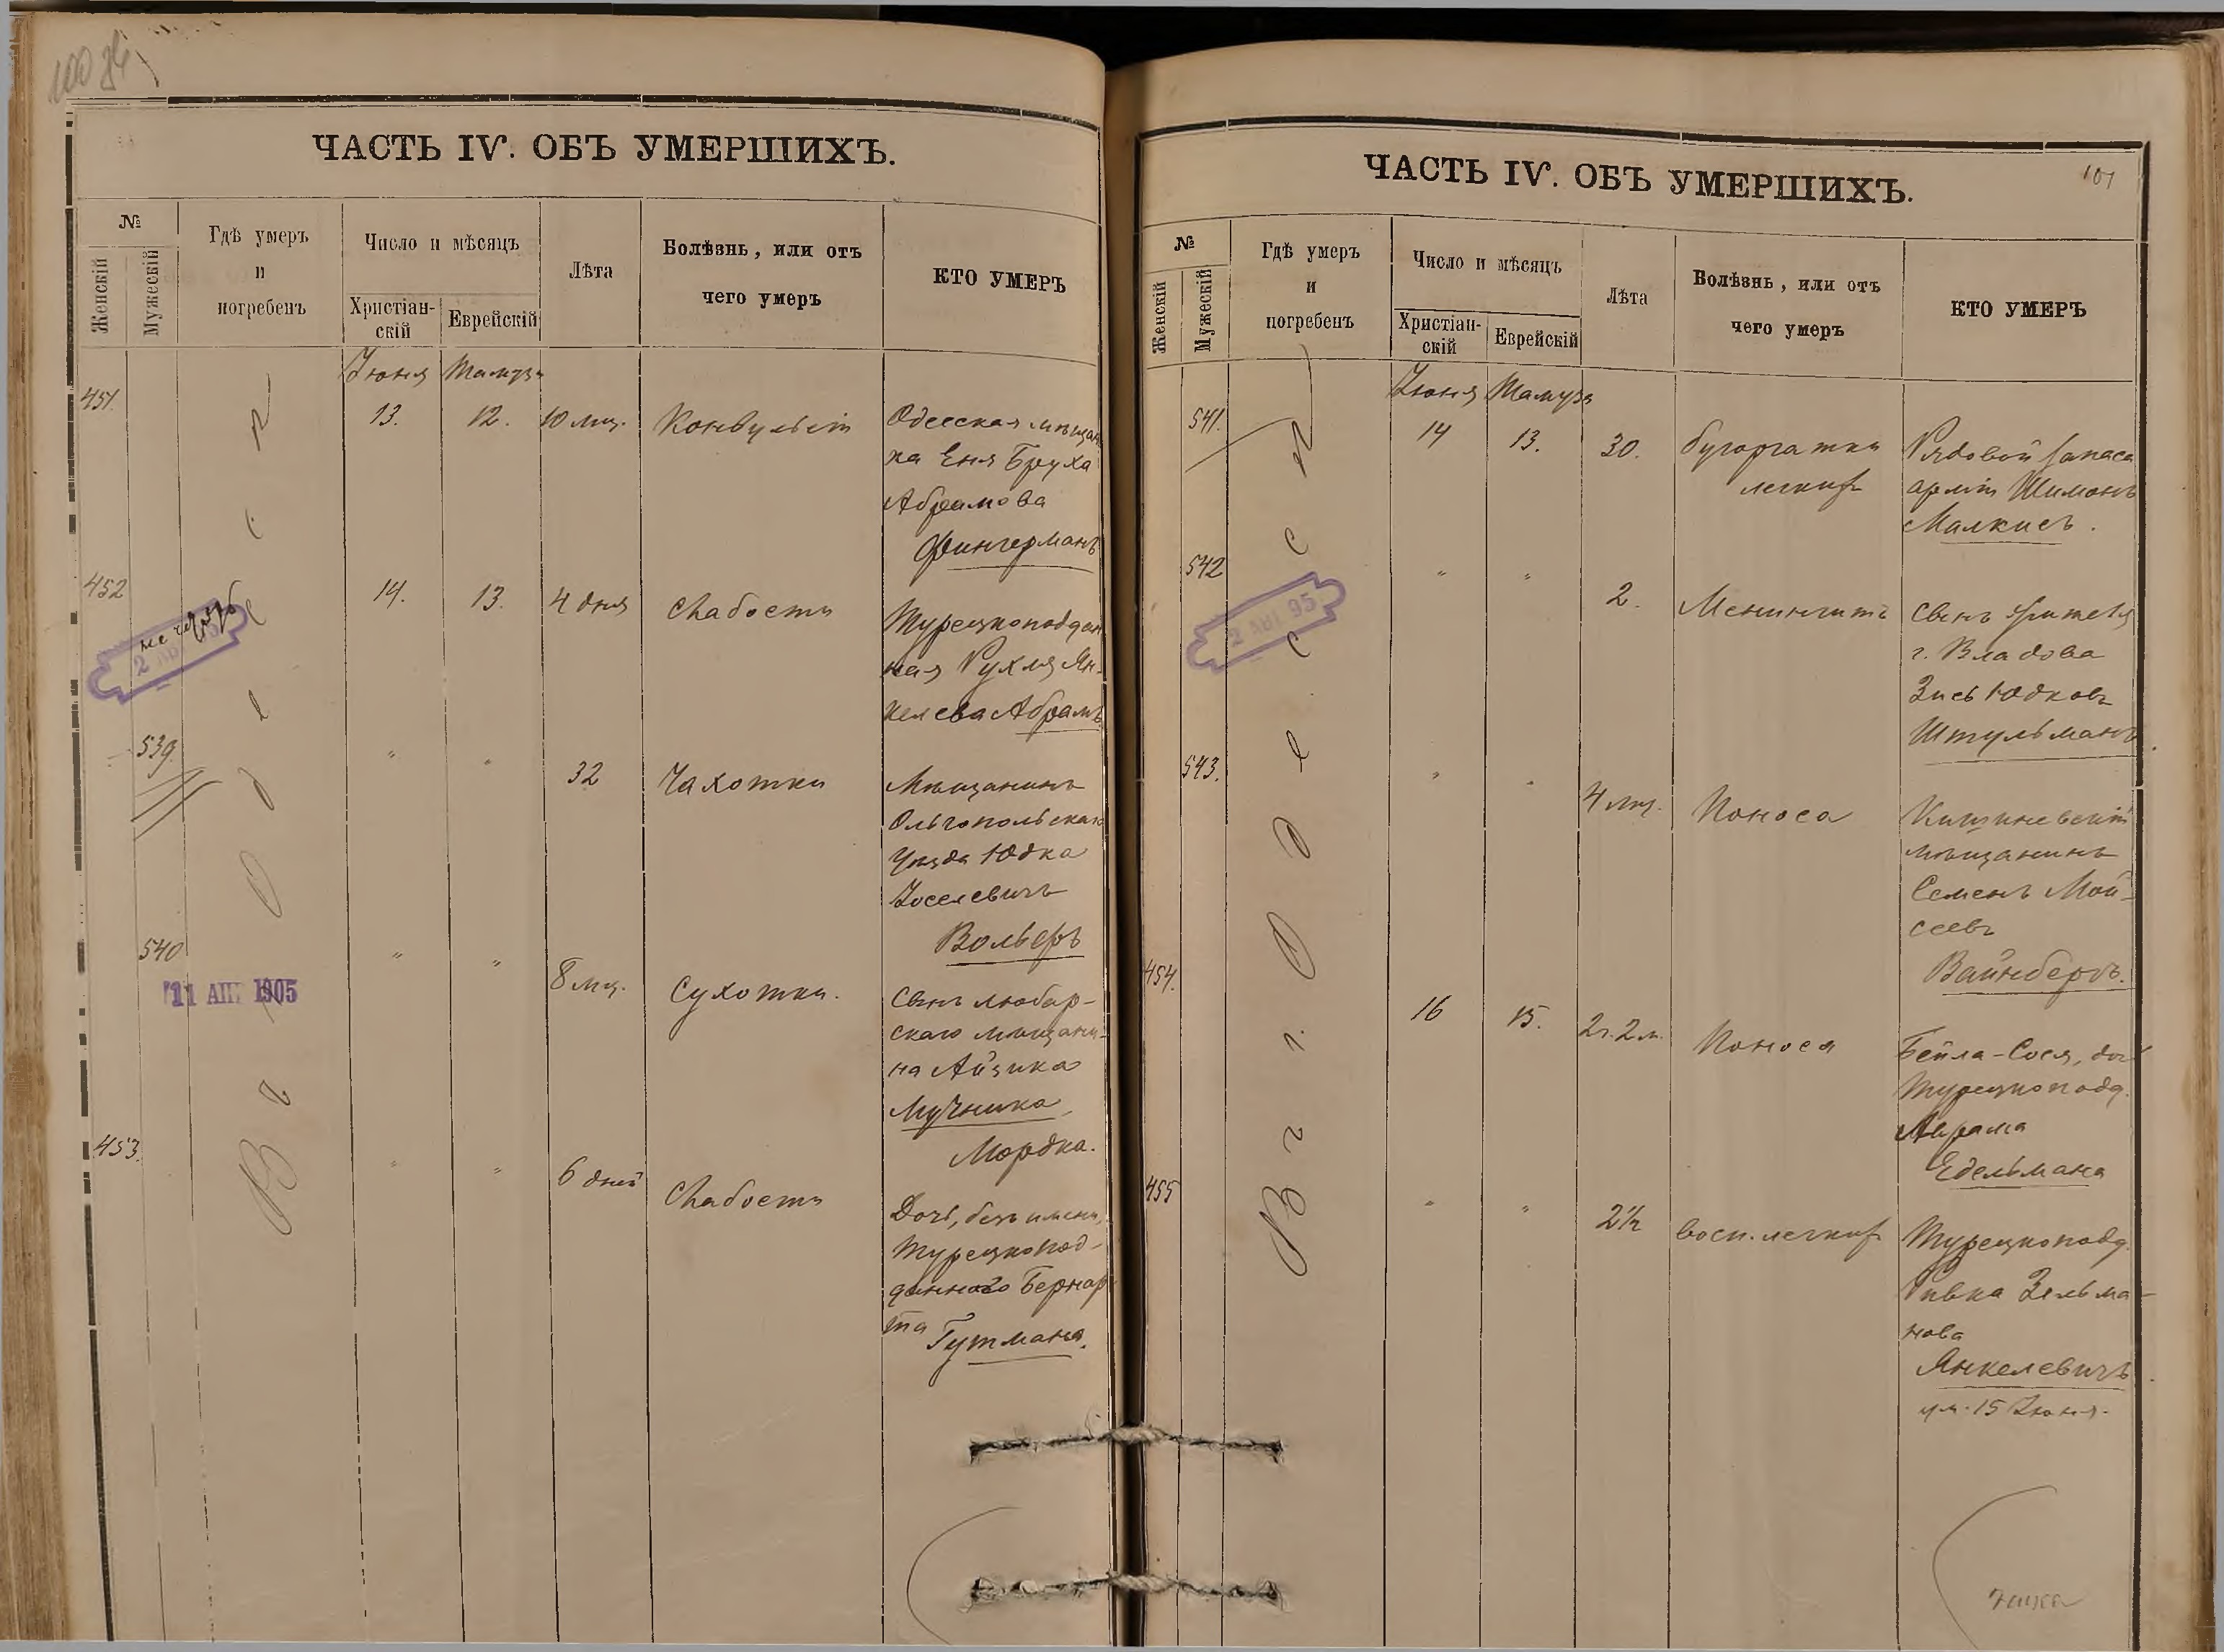 ЧАСТЬ IV. ОБЪ УМЕРШИХЪ.
№
Женскій
Мужескій
Гдѣ умеръ
и
погребенъ
Число и мѣсяцъ
Христіан-
скій
Еврейскій
Лѣта
Болѣзнь, или отъ
чего умеръ
КТО УМЕРЪ
Іюня Тамузъ
451.
13.
12.
10 мц.
Конвульсіи
Одесская мѣщан
ка Еня Бруха
Абрамова
Фингерманъ
452
14.
13.
4 дня
Слабости
Турецкоподдан
ная Рухля Ян-
келева Абрамъ.
539.
"
"
32
Чахотки
Мѣщанинъ
Ольгопольскаго
Уѣзда Юдка
Іоселевичъ
Вольеръ
540
"
"
8 мц.
Сухотки.
Сынъ любар-
скаго мѣщани-
на Айзика
Мучника
Мордка.
453.
"
"
6 дней
Слабости
Дочь, безъ имени,
Турецкопод-
даннаго Бернар
та Гутмана.
В г. Одессѣ
11 АПР 1905
ЧАСТЬ IV. ОБЪ УМЕРШИХЪ.
101
№
Женскій
Мужескій
Гдѣ умеръ
и
погребенъ
Число и мѣсяцъ
Христіан-
скій
Еврейскій
Лѣта
Болѣзнь, или отъ
чего умеръ
КТО УМЕРЪ
Іюня Тамузъ
541.
14
13.
30.
бугорчатки
легкихъ
Рядовой запаса
арміи Шимонъ
Малкисъ.
542
"
"
2.
Менингитъ
Сынъ жителя
г. Владова
Зись Юдковъ
Штульманъ.
543.
"
"
4 мц.
Поноса
Кишиневскій
мѣщанинъ
Семенъ Мой-
сеевъ
Вайнбергъ.
454.
16
15.
2 г. 2 м.
Поноса
Бейла-Сося, дочь
Турецкоподд.
Абрама
Едельмана
455
"
"
2½
Восп. легкихъ
Турецкоподд.
Ривка Зельма-
нова
Янкелевичъ.
ум. 15 Іюня.
В г. Одессѣ
2 АВГ 95